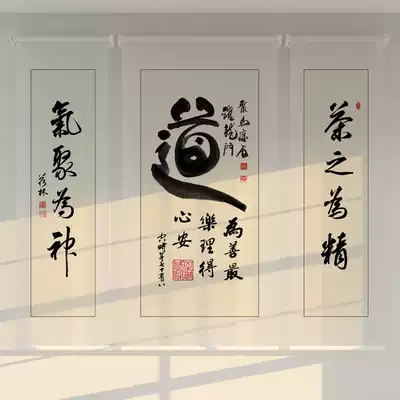 茶之為精
躍龍門
道
為善最
樂理得
心安
氣聚為神